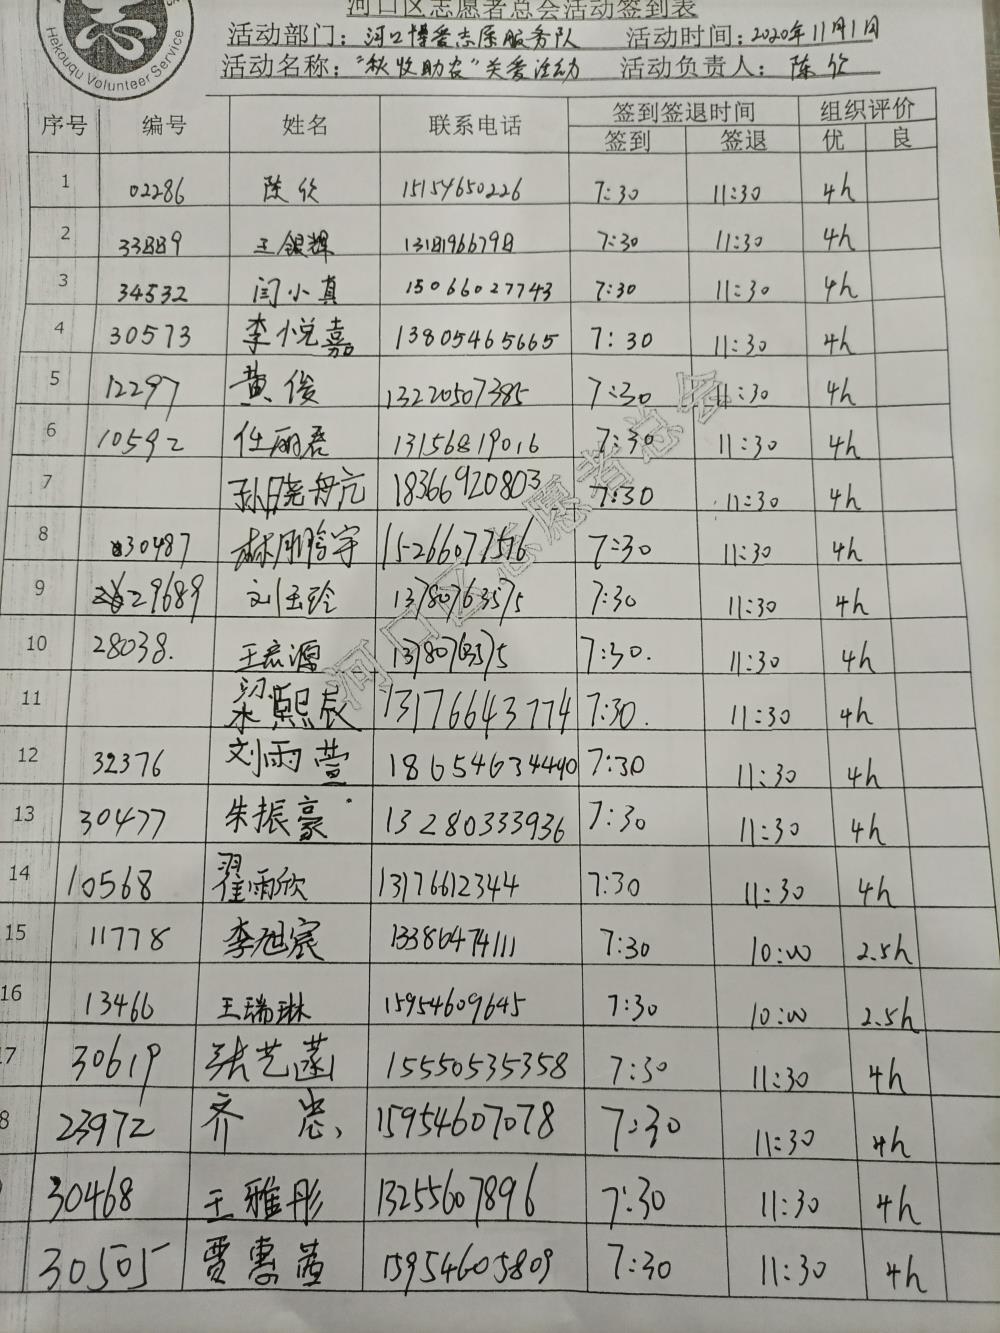 河口区志愿者总会活动签到表
Hekouqu Volunteer Service
活动部门：河口博爱志愿服务队 活动时间：2020年11月1日
活动名称："秋收助农"关爱活动 活动负责人：陈欣
序号 编号 姓名 联系电话 签到签退时间 组织评价
签到 签退 优 良
1 02286 陈欣 15154650226 7:30 11:30 4h
2 33889 王银辉 7:30 11:30 4h
3 34532 闫小真 15066027743 7:30 11:30 4h
4 30573 李悦嘉 13805465665 7:30 11:30 4h
5 12297 黄俊 13220507385 7:30 11:30 4h
6 10592 任丽君 13156819016 7:30 11:30 4h
7 18366920803 7:30 11:30 4h
8 30487 15266077516 7:30 11:30 4h
9 29689 刘玉玲 13780763575 7:30 11:30 4h
10 28038. 王宏源 13780763575 7:30. 11:30 4h
11 梁熙辰 13176643774 7:30. 11:30 4h
12 32376 刘雨萱 18654634440 7:30 11:30 4h
13 30477 朱振豪 13280333936 7:30 11:30 4h
14 10568 翟雨欣 13176612344 7:30 11:30 4h
15 11778 李旭宸 13386474111 7:30 10:00 2.5h
16 13466 王瑞琳 15954609645 7:30 10:00 2.5h
7 30619 张艺菡 15550535358 7:30 11:30 4h
8 23972 齐忠 15954607078 7:30 11:30 4h
30468 王雅彤 13255607896 7:30 11:30 4h
30505 贾惠茜 15954605809 7:30 11:30 4h
河口区志愿者总会